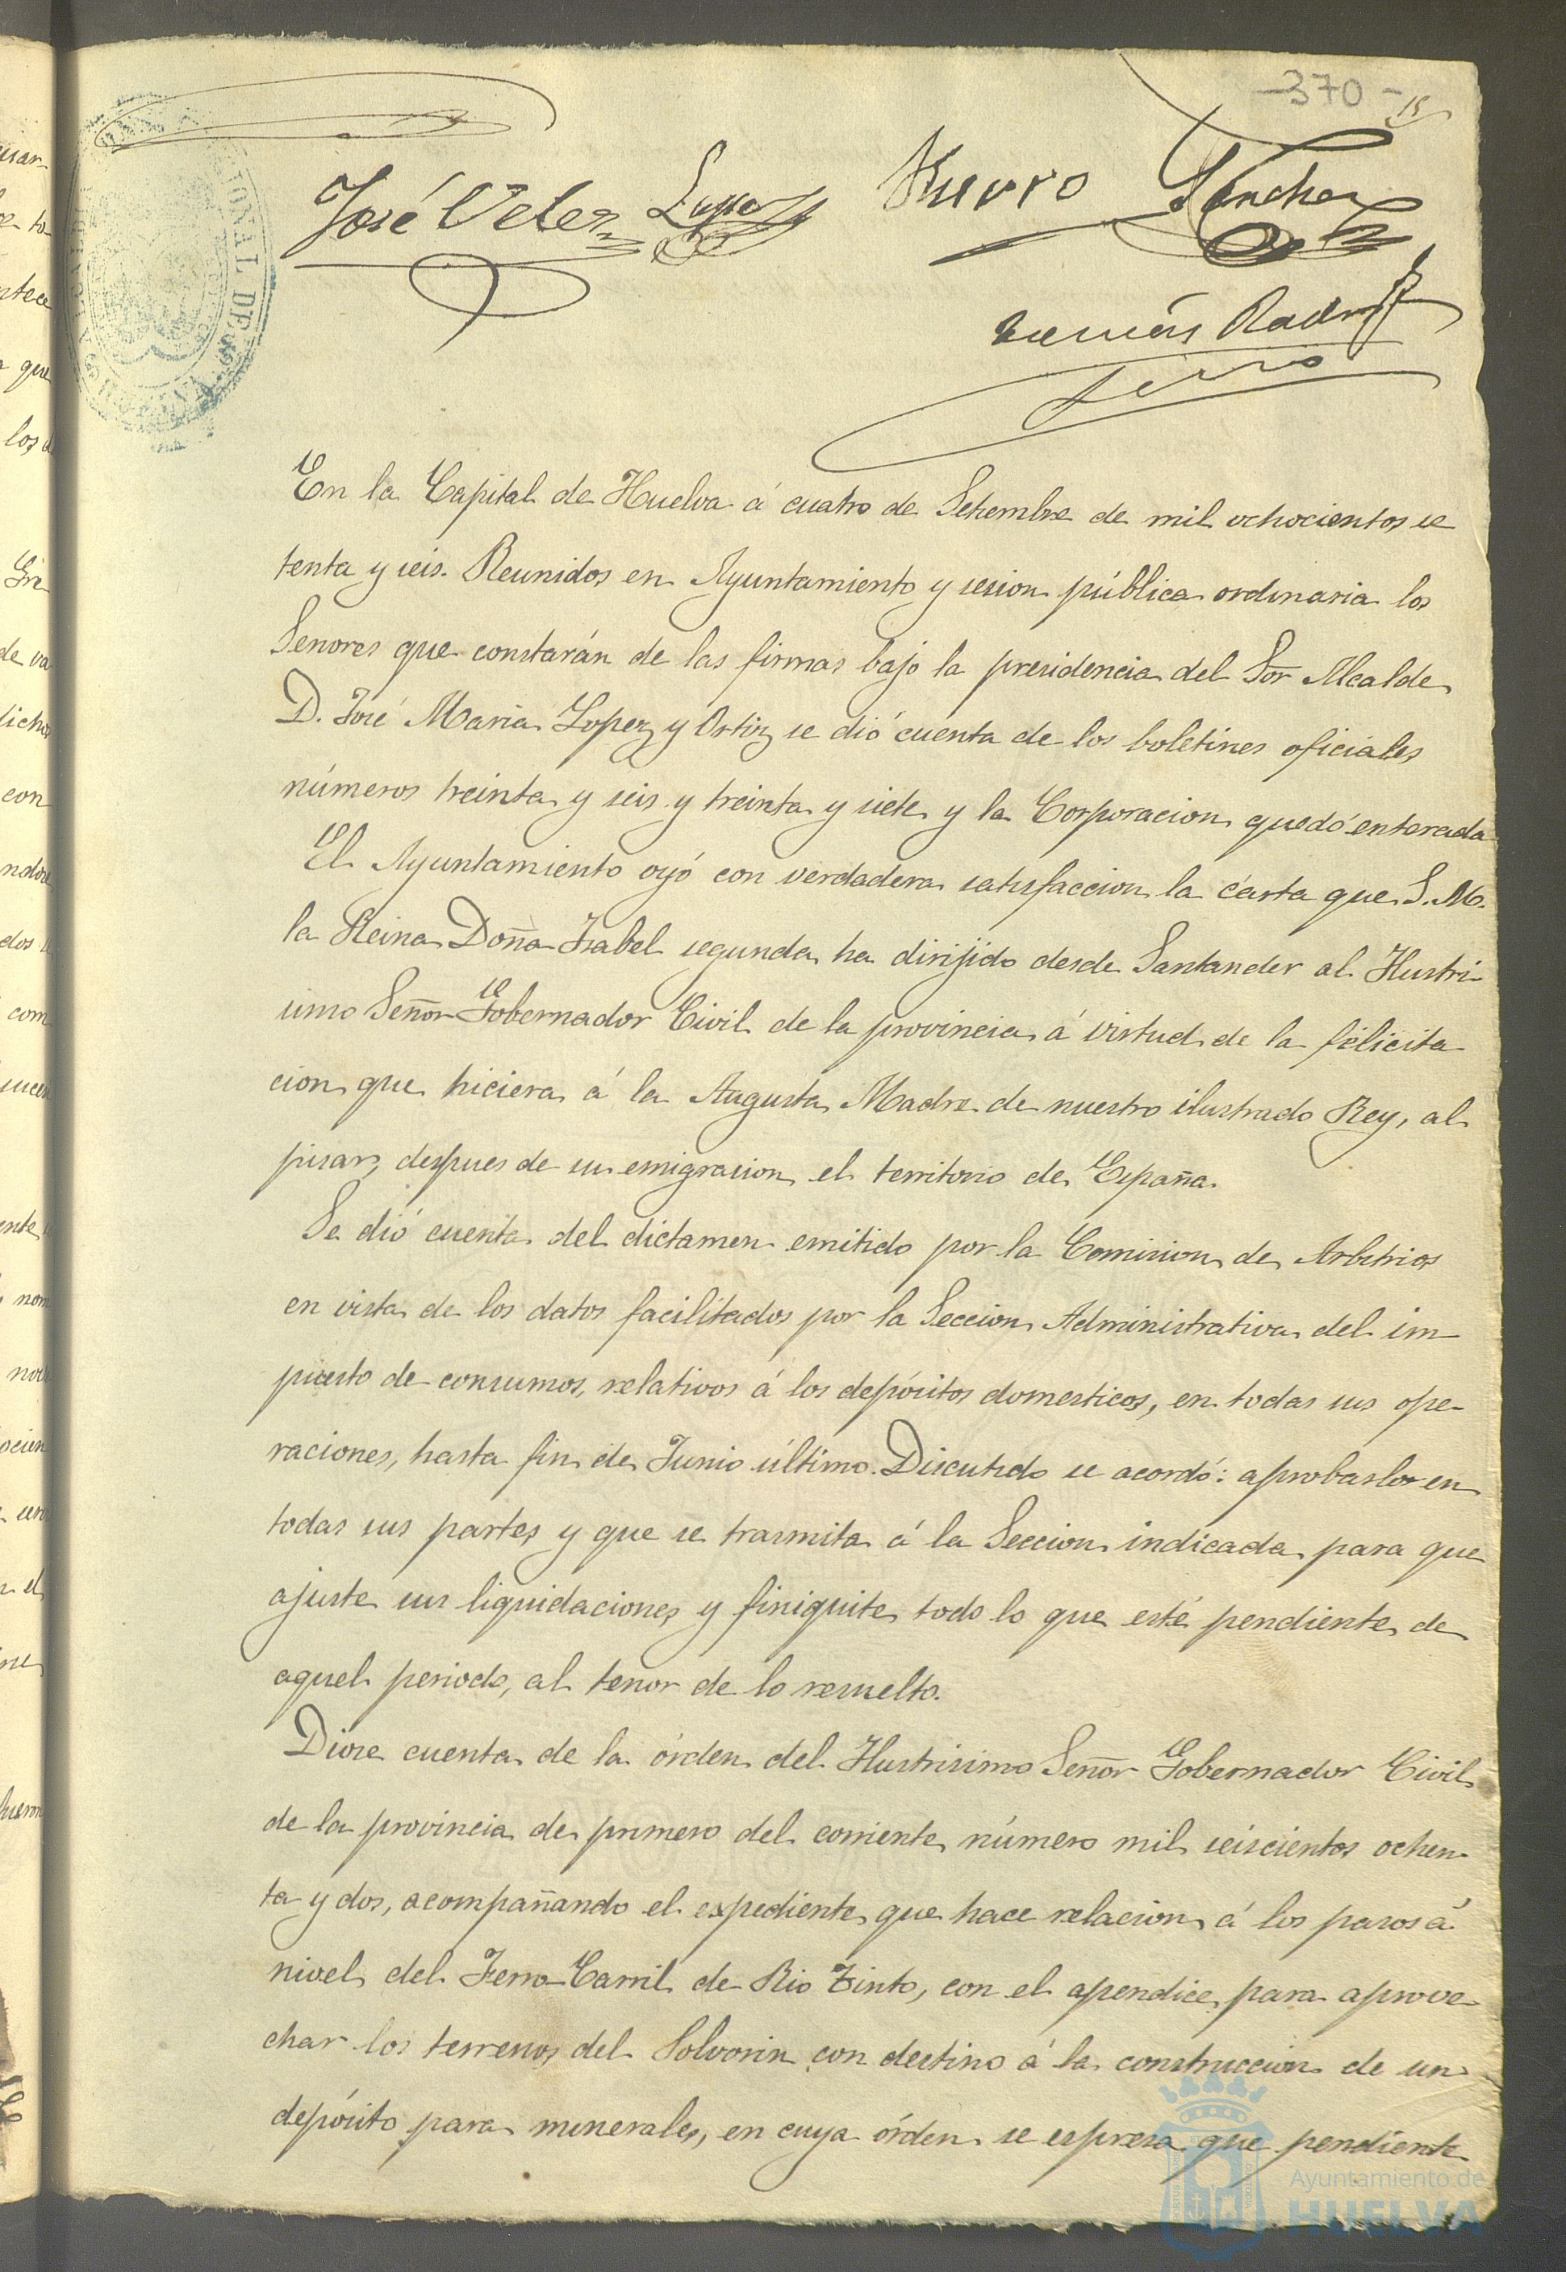 -370-
15
José Velez Lopez Kurro Sanchez
Tomás Rodrig
En la Capital de Huelva á cuatro de Setiembre de mil ochocientos se
tenta y seis. Reunidos en Ayuntamiento y sesion pública ordinaria los
Señores que constarán de las firmas bajo la presidencia del Sor Alcalde
D. José Maria Lopez y Ortiz se dió cuenta de los boletines oficiales
números treinta y seis y treinta y siete y la Corporacion quedó enterada
El Ayuntamiento oyó con verdadera satisfaccion la carta que S.M.
la Reina Doña Isabel segunda ha dirijido desde Santander al Ilustri-
simo Señor Gobernador Civil de la provincia á virtud de la felicita
cion que hiciera á la Augusta Madre de nuestro ilustrado Rey, al
pisar, despues de su emigracion el territorio de España.
Se dió cuenta del dictamen emitido por la Comision de Arbitrios
en vista de los datos facilitados por la Seccion Administrativa del im
puesto de consumos, relativos á los depósitos domesticos, en todas sus ope-
raciones, hasta fin de Junio último. Discutido se acordó: aprobarlos en
todas sus partes y que se trasmita á la Seccion indicada para que
ajuste sus liquidaciones y finiquite todo lo que esté pendiente de
aquel periodo, al tenor de lo resuelto.
Diose cuenta de la órden del Ilustrisimo Señor Gobernador Civil
de la provincia de primero del corriente número mil seiscientos ochen-
ta y dos, acompañando el espediente que hace relacion á los pasos á
nivel del Ferro-Carril de Rio Tinto, con el apendice para aprove-
char los terrenos del Polvorin con destino á la construccion de un
depósito para minerales, en cuya órden se espresa que pendiente
Ayuntamiento de
HUELVA